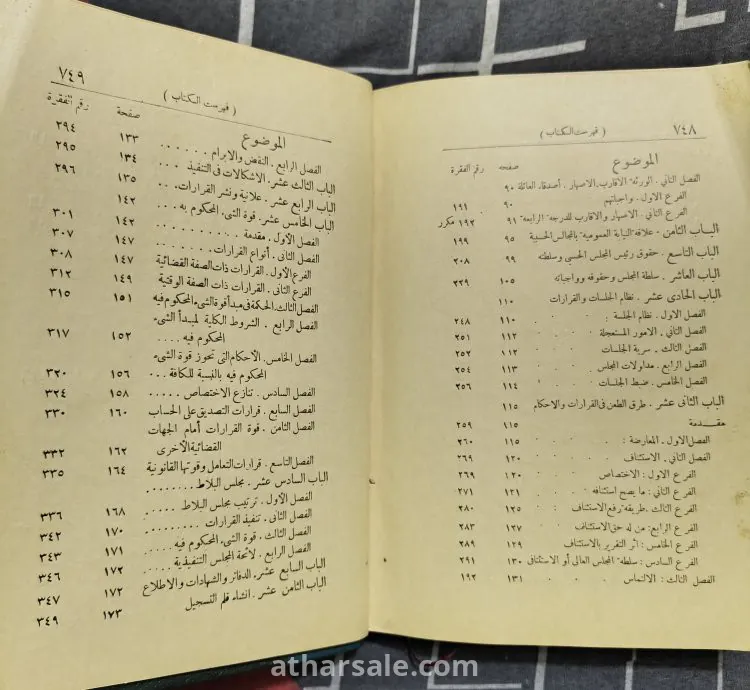 ٧٤٨
( فهرست الكتاب )
الموضوع صفحه رقم الفقرة
الفصل الثاني . الورثة الاقارب الاصهار . أصدقاء العائلة ٩٠
الفرع الاول . واجباتهم ٩٠ ١٩١
الفرع الثاني . الاصهار والاقارب للدرجة الرابعة ٩١ ١٩٢ مكرر
الباب الثامن - علاقة النيابة العمومية بالمجالس الحسبية ٩٥ ١٩٩
الباب التاسع . حقوق رئيس المجلس الحسبى وسلطته ٩٩ ٢٠٨
الباب العاشر . سلطة المجلس وحقوقه وواجباته ١٠٥ ٢٢٩
الباب الحادى عشر . نظام الجلسات والقرارات ١١٠
الفصل الاول . نظام الجلسة : ١١٠ ٢٤٨
الفصل الثاني . الامور المستعجلة ١١٢ ٢٥١
الفصل الثالث . سرية الجلسات ١١٢ ٢٥٢
الفصل الرابع . مداولات المجلس ١١٣ ٢٥٤
الفصل الخامس . ضبط الجلسات ١١٤ ٢٥٦
الباب الثانى عشر . طرق الطعن فى القرارات والاحكام ١١٥
مقدمة ١١٥ ٢٥٩
الفصل الاول . المعارضة : ١١٥ ٢٦٠
الفصل الثاني . الاستئناف ١٢٠ ٢٦٩
الفرع الاول : الاختصاص ١٢٠ ٢٦٩
الفرع الثاني : ما يصح استئنافه ١٢١ ٢٧١
الفرع الثالث . طريقة رفع الاستئناف ١٢٥ ٢٨٠
الفرع الرابع: من له حق الاستئناف ١٢٧ ٢٨٣
الفرع الخامس : اثر التقرير بالاستئناف ١٢٩ ٢٨٩
الفرع السادس : سلطة المجلس العالى أو الاستئنافى ١٣٠ ٢٩١
الفصل الثالث : الالتماس ١٣١ ١٩٢
٧٤٩
( فهرست الكتاب )
الموضوع صفحة رقم الفقرة
الفصل الرابع . النقض والابرام ١٣٣ ٢٩٤
الباب الثالث عشر. الاشكالات فى التنفيذ ١٣٤ ٢٩٥
الباب الرابع عشر . علانية ونشر القرارات ١٣٥ ٢٩٦
الباب الخامس عشر. قوة الشىء المحكوم به ١٤٢
الفصل الأول . مقدمة ١٤٢ ٣٠١
الفصل الثانى . أنواع القرارات ١٤٧ ٣٠٧
الفرع الاول . القرارات ذات الصفة القضائية ١٤٧ ٣٠٨
الفرع الثانى . القرارات ذات الصفة الوقتية ١٤٩ ٣١٢
الفصل الثالث . الحكمة فى مبدأ قوة الشىء المحكوم فيه ١٥١ ٣١٥
الفصل الرابع . الشروط الكلية لمبدأ الشىء
المحكوم فيه ١٥٢ ٣١٧
الفصل الخامس . الأحكام التى تحوز قوة الشىء
المحكوم فيه بالنسبة للكافة ١٥٦ ٣٢٠
الفصل السادس . تنازع الاختصاص ١٥٨ ٣٢٤
الفصل السابع . قرارات التصديق على الحساب ١٦٠ ٣٣٠
الفصل الثامن . قوة القرارات أمام الجهات
القضائية الأخرى ١٦٢ ٣٣٢
الفصل التاسع . قرارات التعامل وقوتها القانونية ١٦٤ ٣٣٥
الباب السادس عشر . مجلس البلاط
الفصل الأول . ترتيب مجلس البلاط ١٦٨ ٣٣٦
الفصل الثانى . تنفيذ القرارات ١٧٠ ٣٤٢
الفصل الثالث . قوة الشىء المحكوم فيه ١٧١ ٣٤٣
الفصل الرابع . لائحة المجلس التنفيذية ١٧٢ ٣٤٦
الباب السابع عشر. الدفاتر والشهادات والاطلاع ١٧٢ ٣٤٧
الباب الثامن عشر . انشاء قلم التسجيل ١٧٣ ٣٤٩
atharsale.com